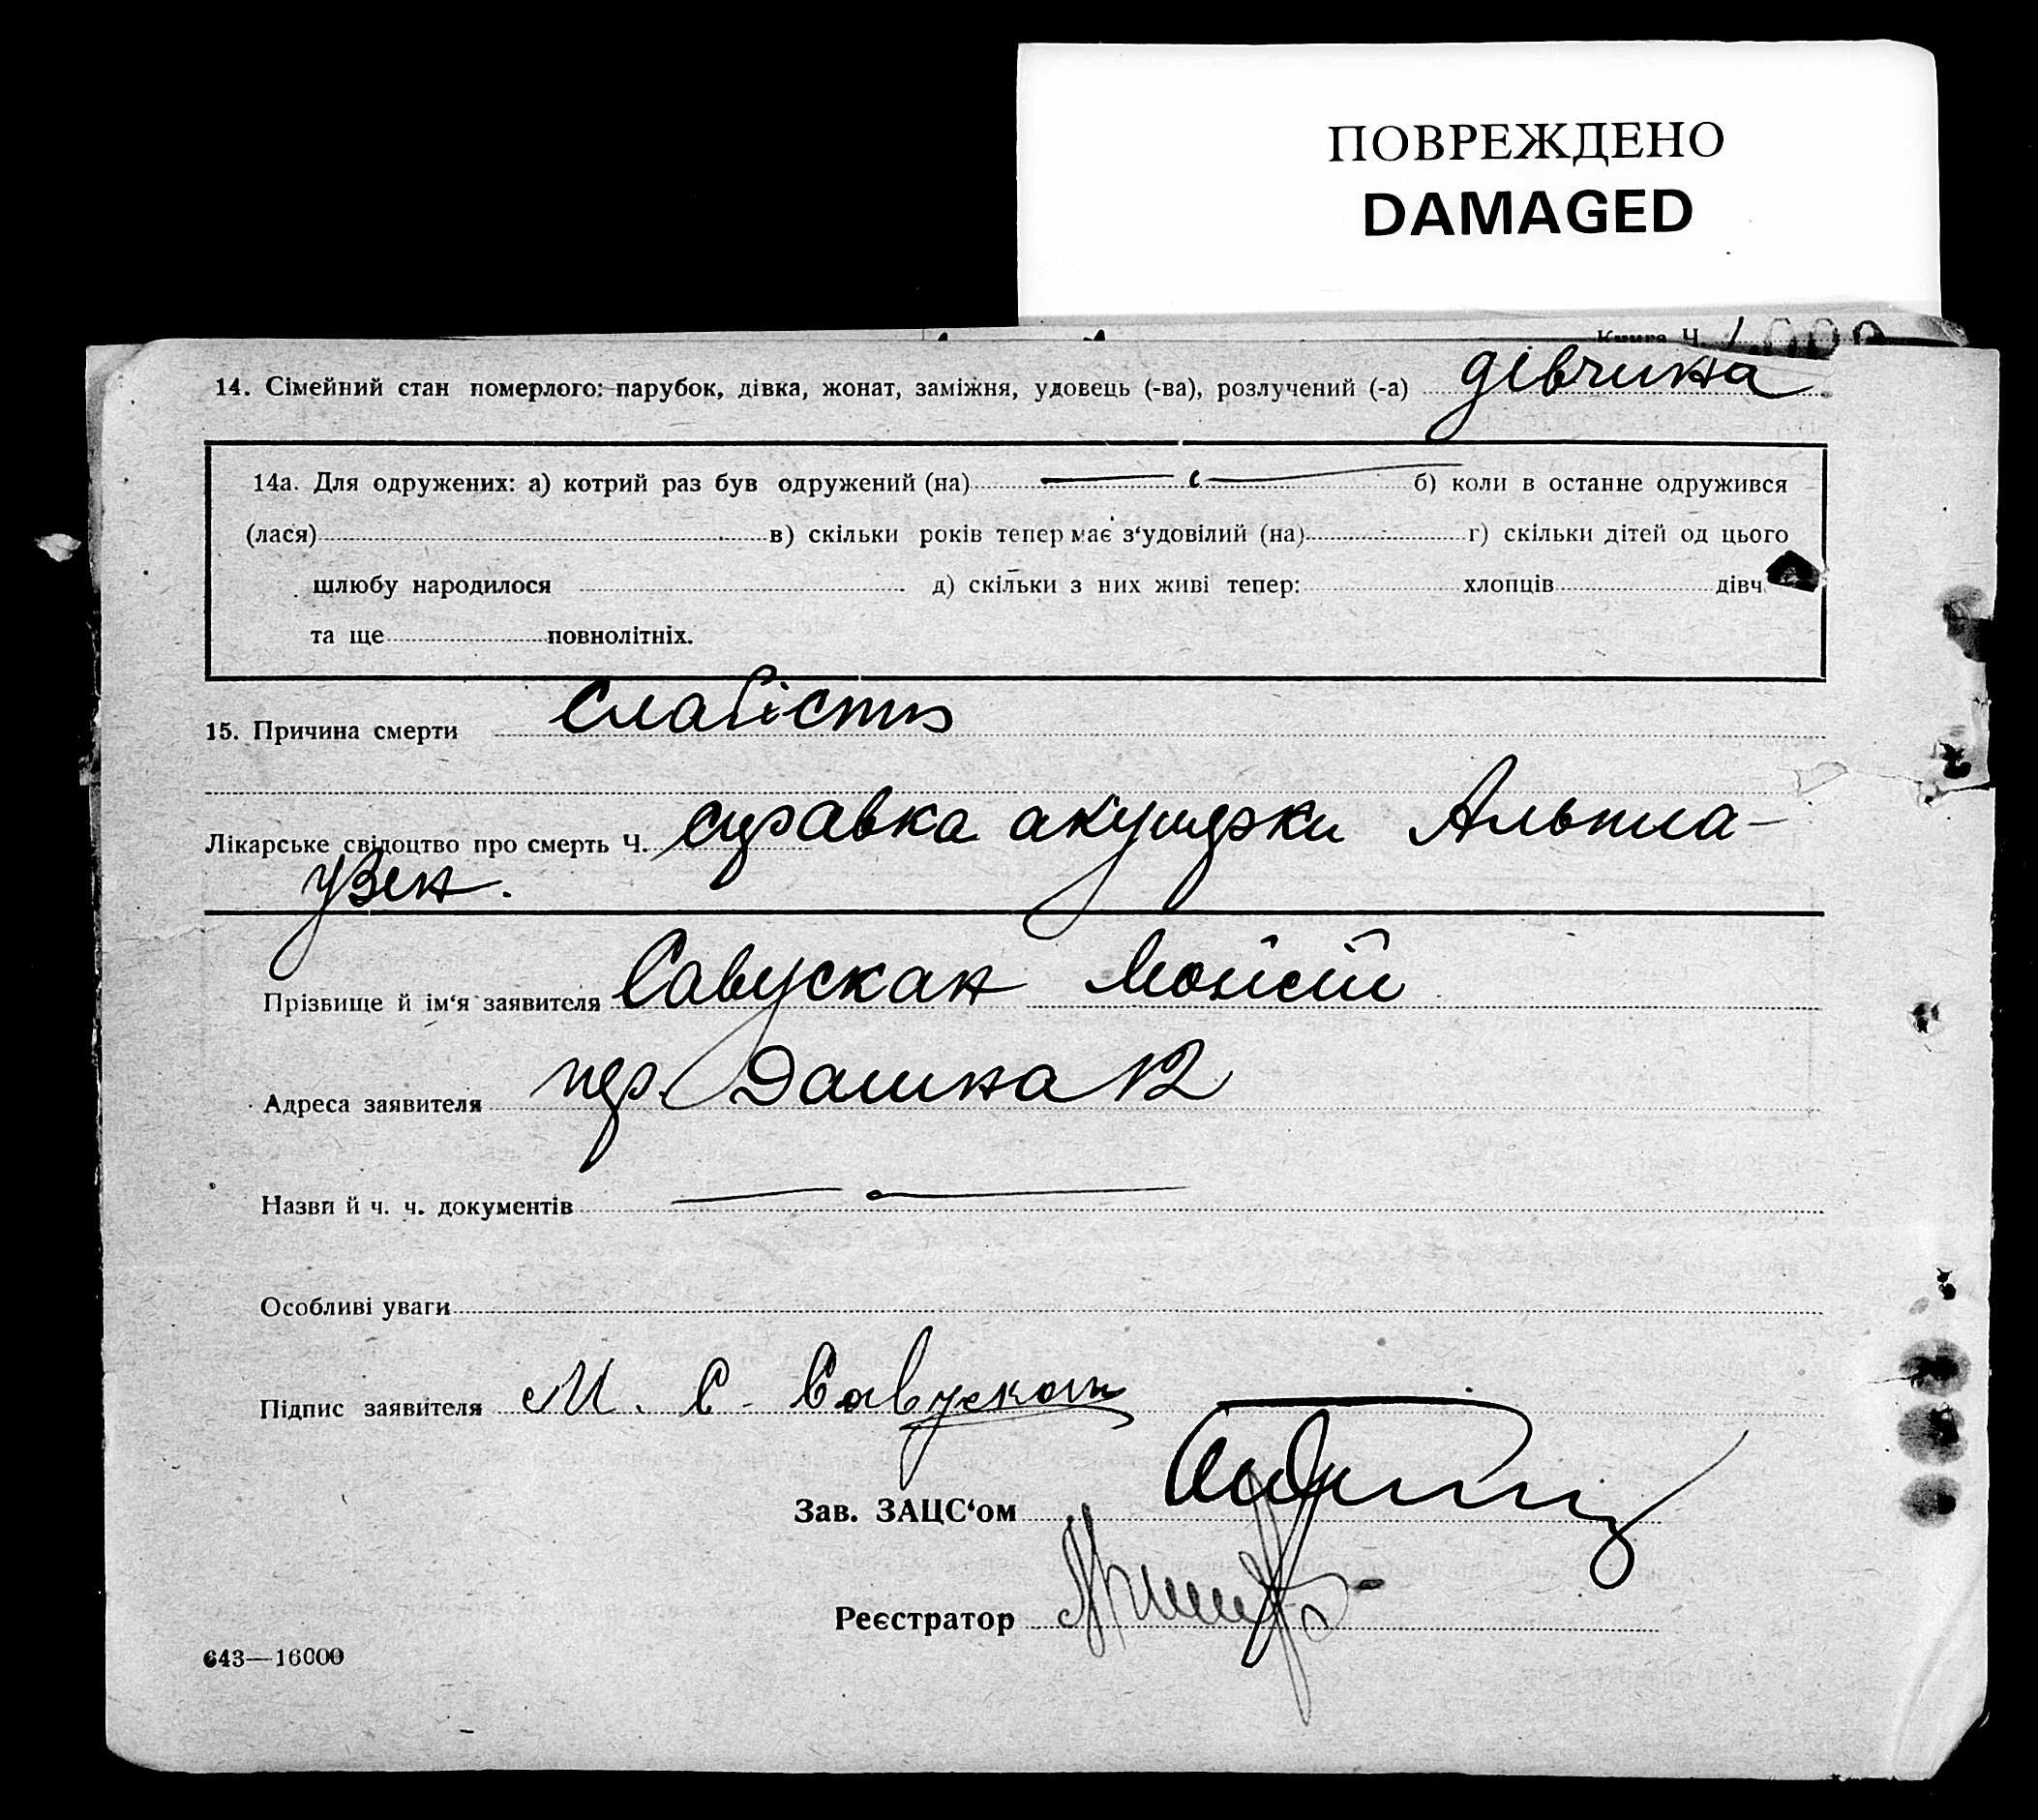 ПОВРЕЖДЕНО
DAMAGED
Книга Ч.
14. Сімейний стан померлого: парубок, дівка, жонат, заміжня, удовець (-ва), розлучений (-а) дівчина
14а. Для одружених: а) котрий раз був одружений (на) б) коли в останне одружився
(лася) в) скільки років тепер має з‘удовілий (на) г) скільки дітей од цього
шлюбу народилося д) скільки з них живі тепер: хлопців дівч
та ще повнолітніх.
15. Причина смерти слабість
Лікарське свідоцтво про смерть Ч. справка акушерки Альтга-
узен.
Прізвище й ім‘я заявителя Савускан Мойсей
Адреса заявителя пер. Дашна 12
Назви й ч. ч. документів
Особливі уваги
Підпис заявителя М. С. Савускан
Зав. ЗАЦС‘ом
Реєстратор
643—16000